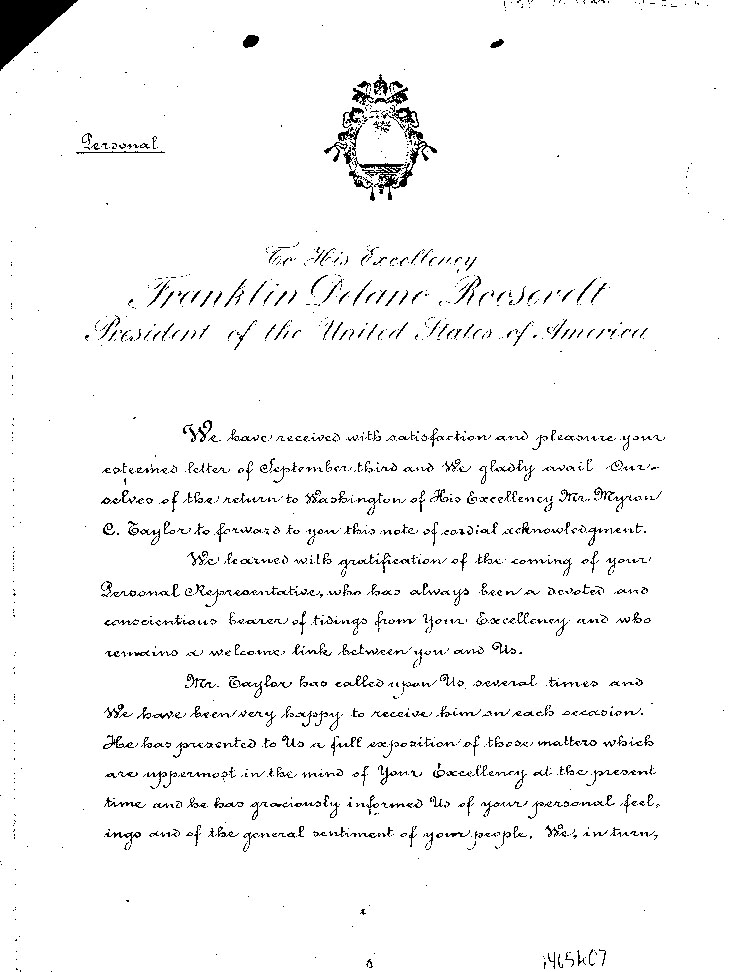 Personal
To His Excellency
Franklin Delano Roosevelt
President of the United States of America
We have received with satisfaction and pleasure your
esteemed letter of September third and We gladly avail Our-
selves of the return to Washington of His Excellency Mr. Myron
C. Taylor to forward to you this note of cordial acknowledgment.
We learned with gratification of the coming of your
Personal Representative, who has always been a devoted and
conscientious bearer of tidings from Your Excellency and who
remains a welcome link between you and Us.
Mr. Taylor has called upon Us several times and
We have been very happy to receive him on each occasion.
He has presented to Us a full exposition of those matters which
are uppermost in the mind of Your Excellency at the present
time and he has graciously informed Us of your personal feel-
ings and of the general sentiment of your people. We, in turn,